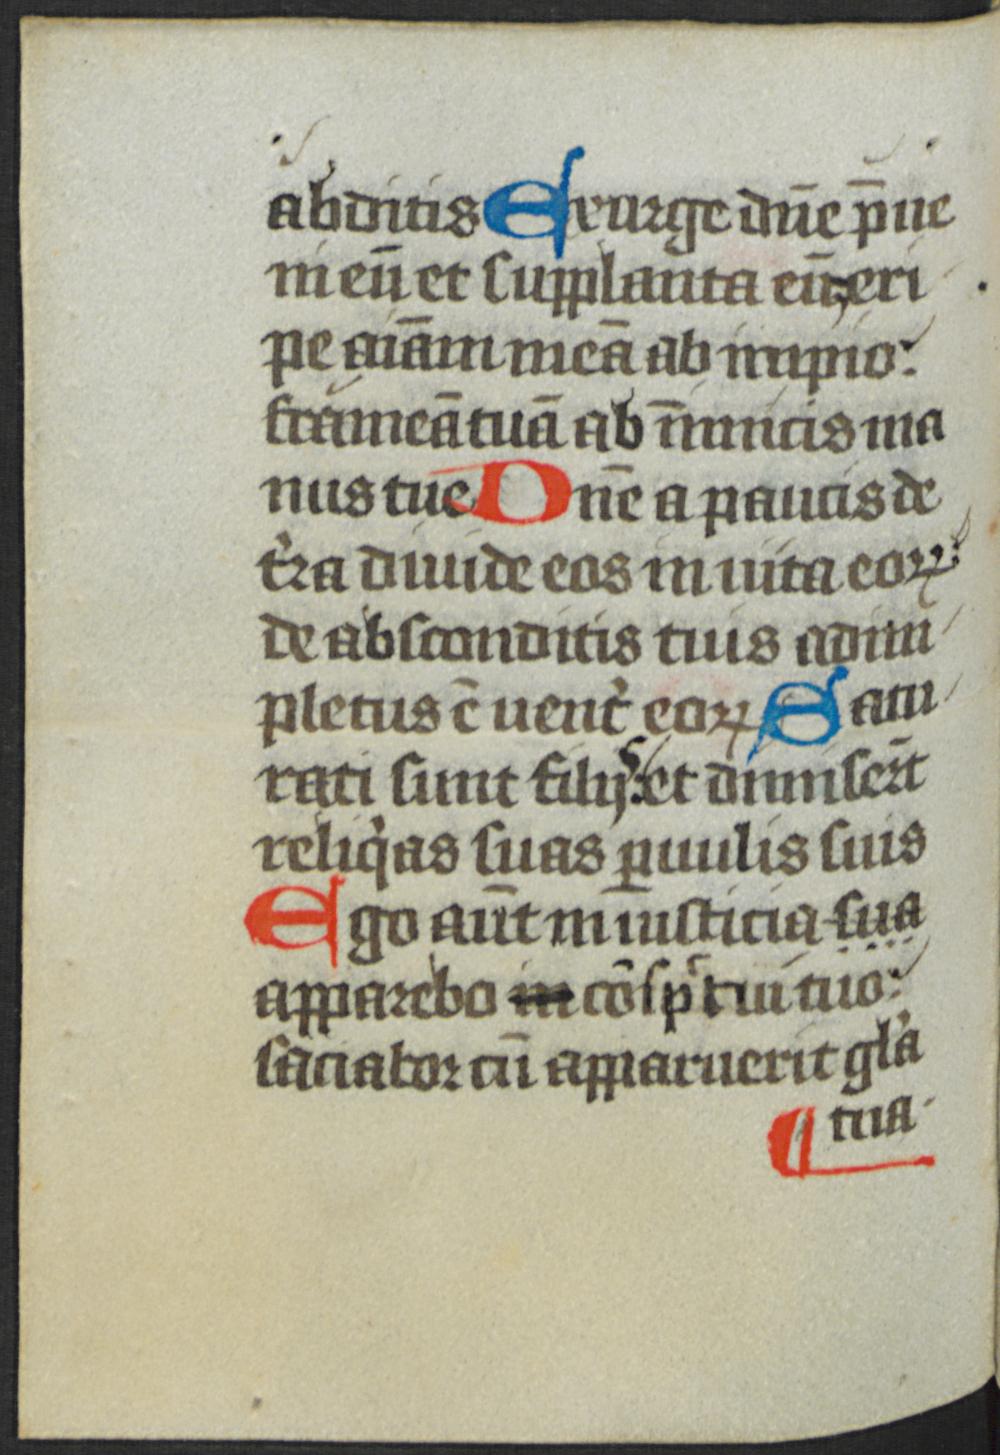 abditis Exurge dn̄e p̄ue
ni eū et supplanta eū eri
pe aīam meā ab impio:
frameā tuā ab īnimicis ma
nus tue Dn̄e a paucis de
tr̓a diuide eos in uita eoꝝ:
de absconditis tuis adim
pletus ē uent̓ eoꝝ Satu
rati sunt filijs: et dimiser̄t
reliq̓as suas ꝑuulis suis
Ego aūt in iusticia sua
apparebo in cōspc̄tui tuo:
saciabor cū apparuerit gl̓a
tua·